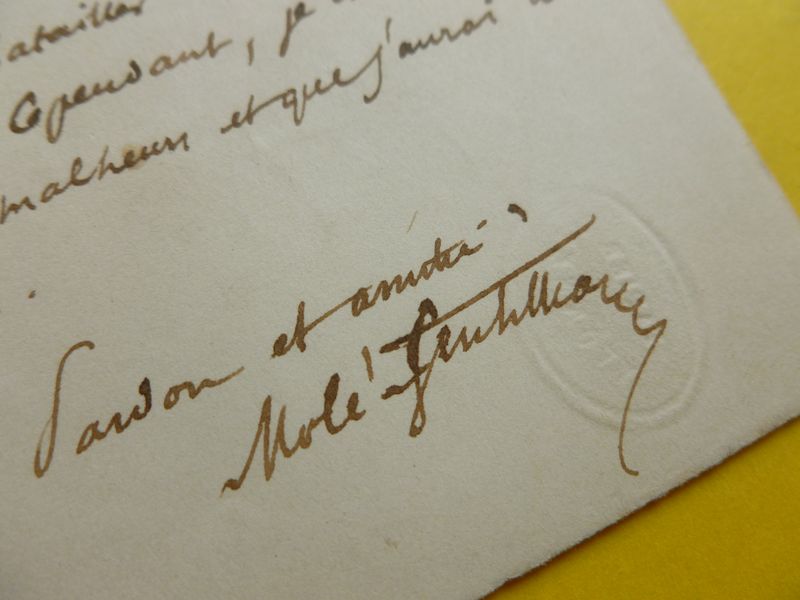 batailler
Cependant, je
malheurs et que j'aurai
Pardon et amitié,
Molé-Gentilhomme